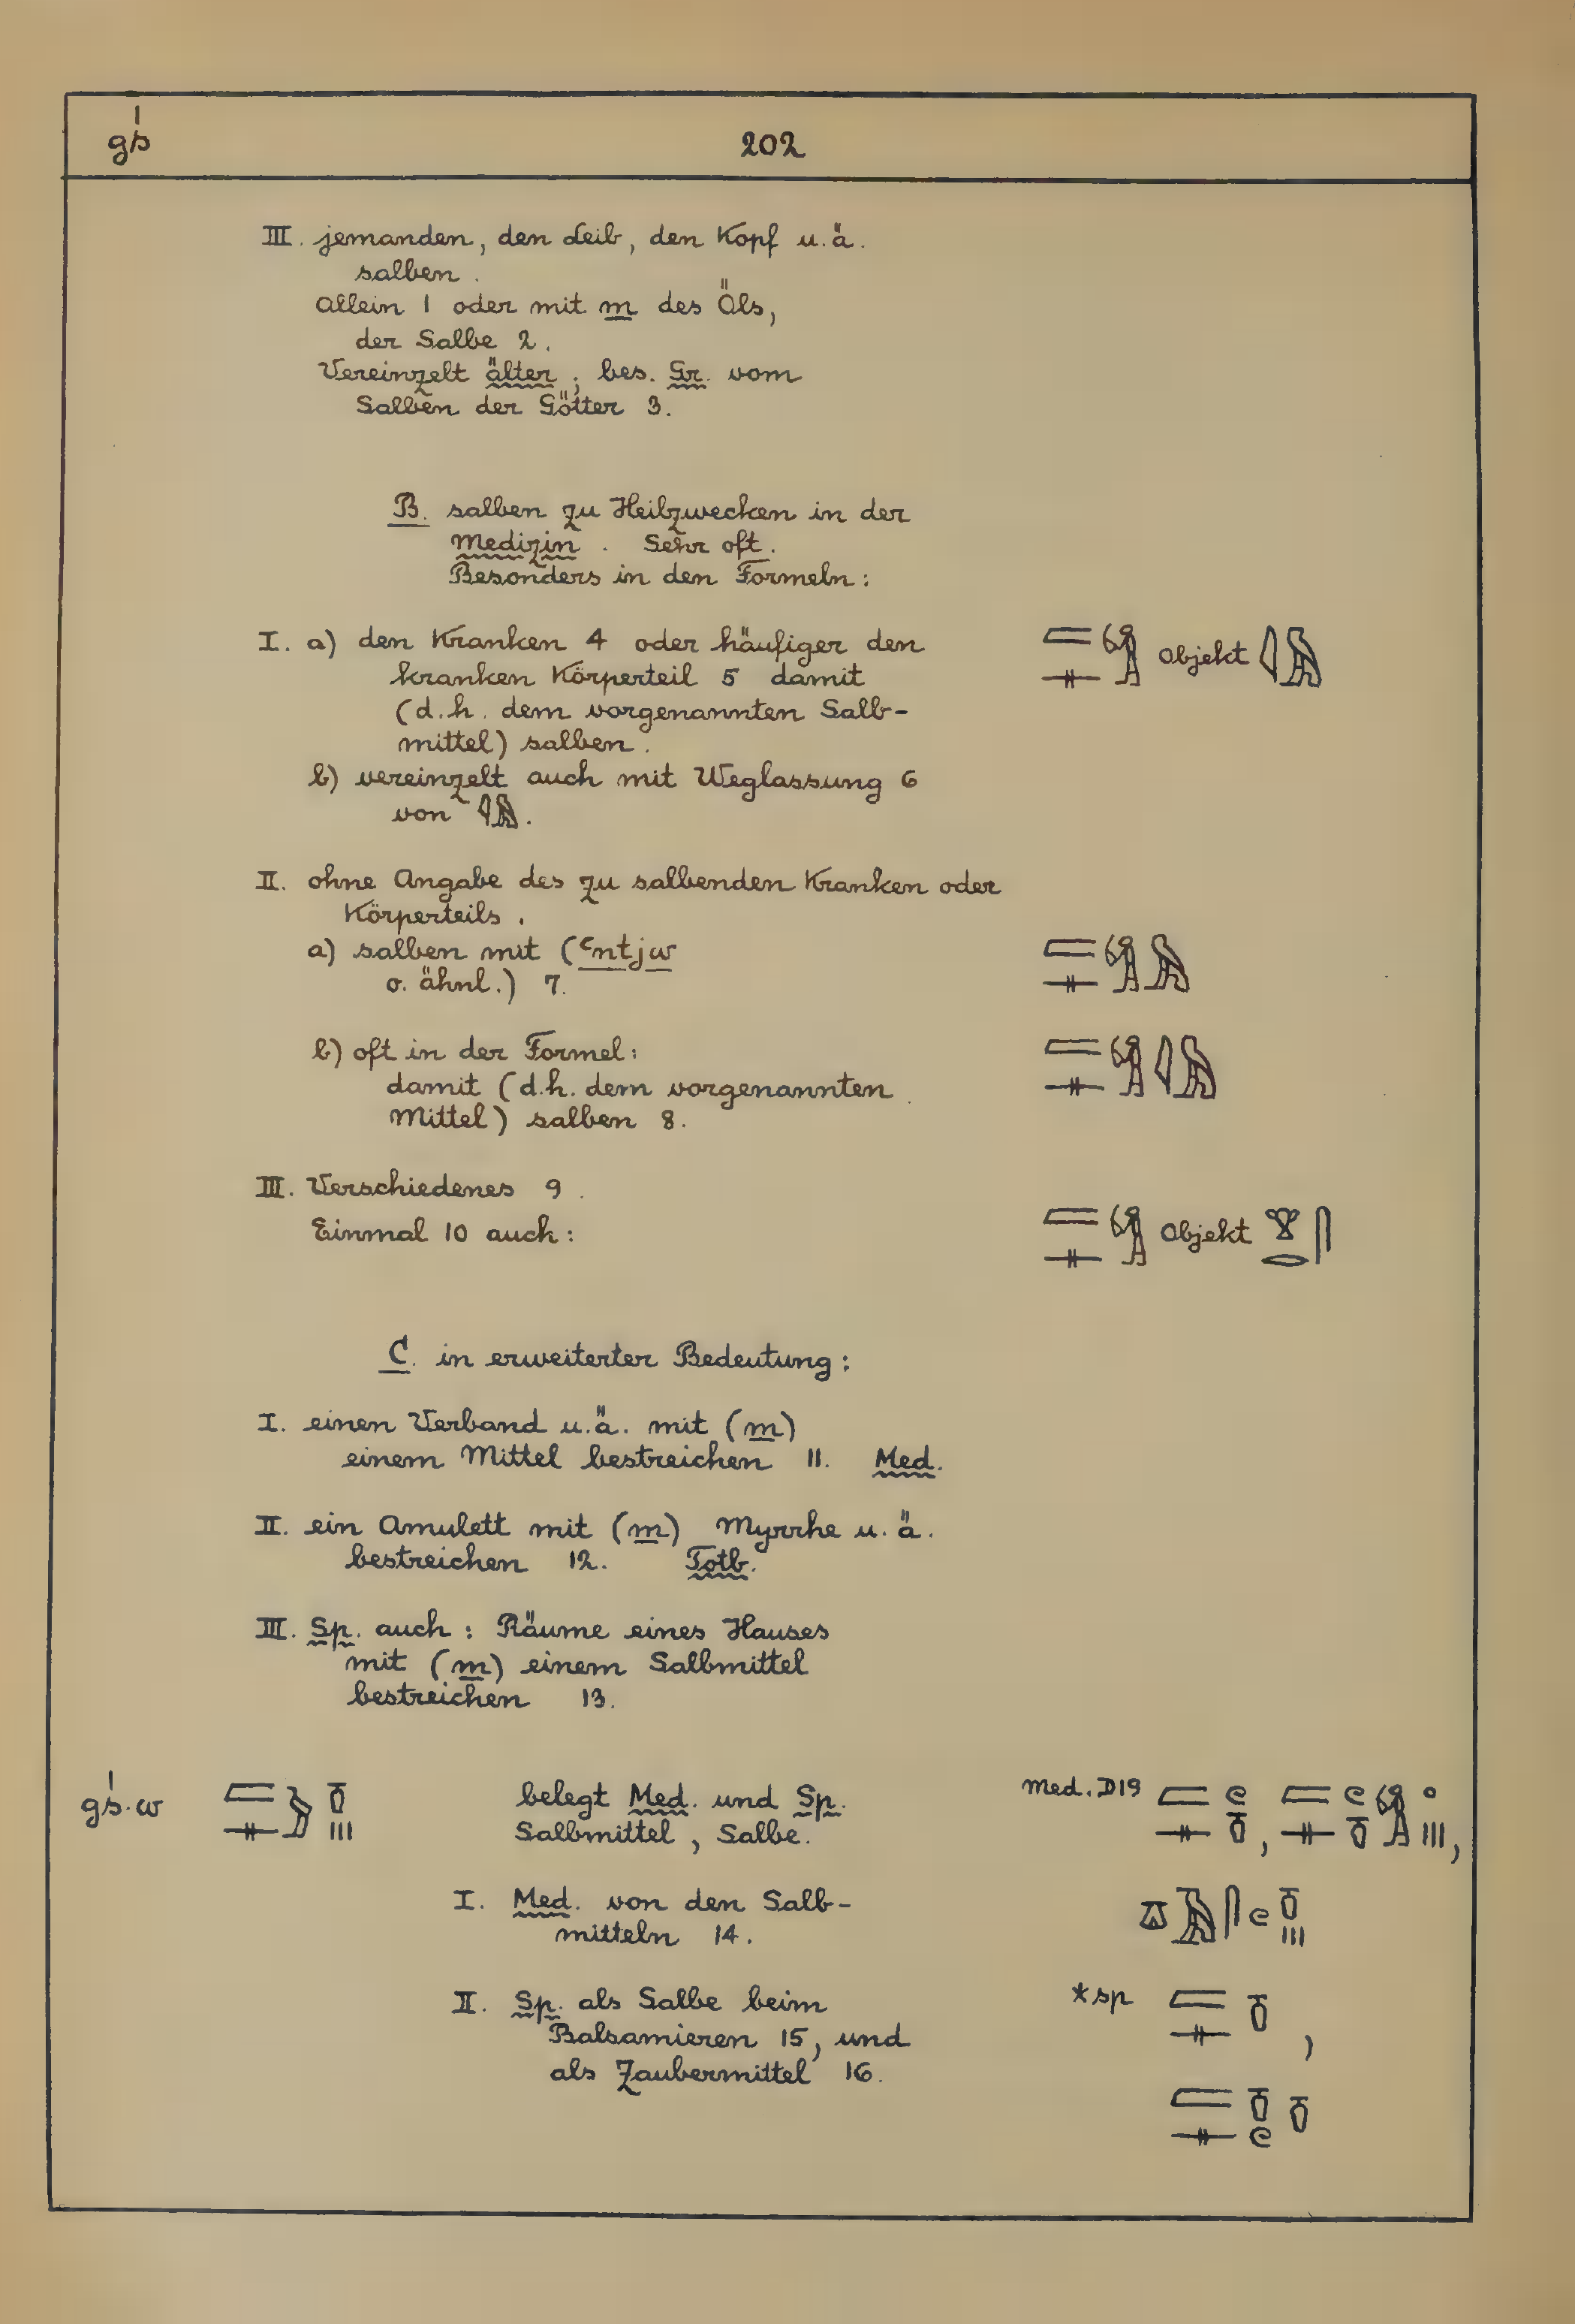 gś 202
III. jemanden, den Leib, den Kopf u.ä.
salben.
Allein 1 oder mit m des Öls,
der Salbe 2.
Vereinzelt älter; bes. Gr. vom
Salben der Götter 3.
B. salben zu Heilzwecken in der
Medizin. Sehr oft.
Besonders in den Formeln:
I. a) den Kranken 4 oder häufiger den
kranken Körperteil 5 damit Objekt
(d.h. dem vorgenannten Salb-
mittel) salben.
b) vereinzelt auch mit Weglassung 6
von 𓇋𓅓.
II. ohne Angabe des zu salbenden Kranken oder
Körperteils.
a) salben mit (ꜥntjw
o. ähnl.) 7.
b) oft in der Formel:
damit (d.h. dem vorgenannten
Mittel) salben 8.
III. Verschiedenes 9.
Einmal 10 auch: Objekt
C. in erweiterter Bedeutung:
I. einen Verband u.ä. mit (m)
einem Mittel bestreichen 11. Med.
II. ein Amulett mit (m) Myrrhe u.ä.
bestreichen 12. Totb.
III. Sp. auch: Räume eines Hauses
mit (m) einem Salbmittel
bestreichen 13.
gś.w belegt Med. und Sp. med. D19
Salbmittel, Salbe.
I. Med. von den Salb-
mitteln 14.
II. Sp. als Salbe beim *sp
Balsamieren 15, und
als Zaubermittel 16.